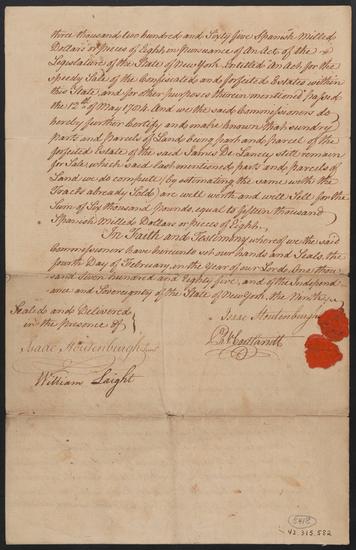 three thousand two hundred and Sixty five Spanish Milled
Dollars or pieces of Eight, in pursuance of An Act of the
Legislature of the State of New York Entitled an Act for the
Speedy Sale of the Confiscated and forfeited Estates within
this State, and for other purposes therein mentioned passed
the 12th of May 1784. And we the said Commissioners do
hereby further Certify and make known that sundry
parts and parcels of Lands being part and parcel of the
forfeited Estate of the said James De Lancey still remain
for Sale, which said last mentioned parts and parcels of
Land we do compute (by estimating the same, with the
Tracts already Sold) are well worth and will Sell for the
Sum of Six thousand Pounds, equal to fifteen thousand
Spanish Milled Dollars or pieces of Eight.
In Faith and Testimony whereof we the said
Commissioners have hereunto set our hands and Seals, the
fourth Day of February, in the Year of our Lord, One thou
sand Seven hundred and Eighty five, and of the Independ
ance and Sovereignty of the State of New York, the Ninth
Sealed and Delivered
in the Presence of
Isaac Stoutenburgh
Isaac Stoutenburgh Junr
P V Cortlandt
William Laight
5418
42.315.582